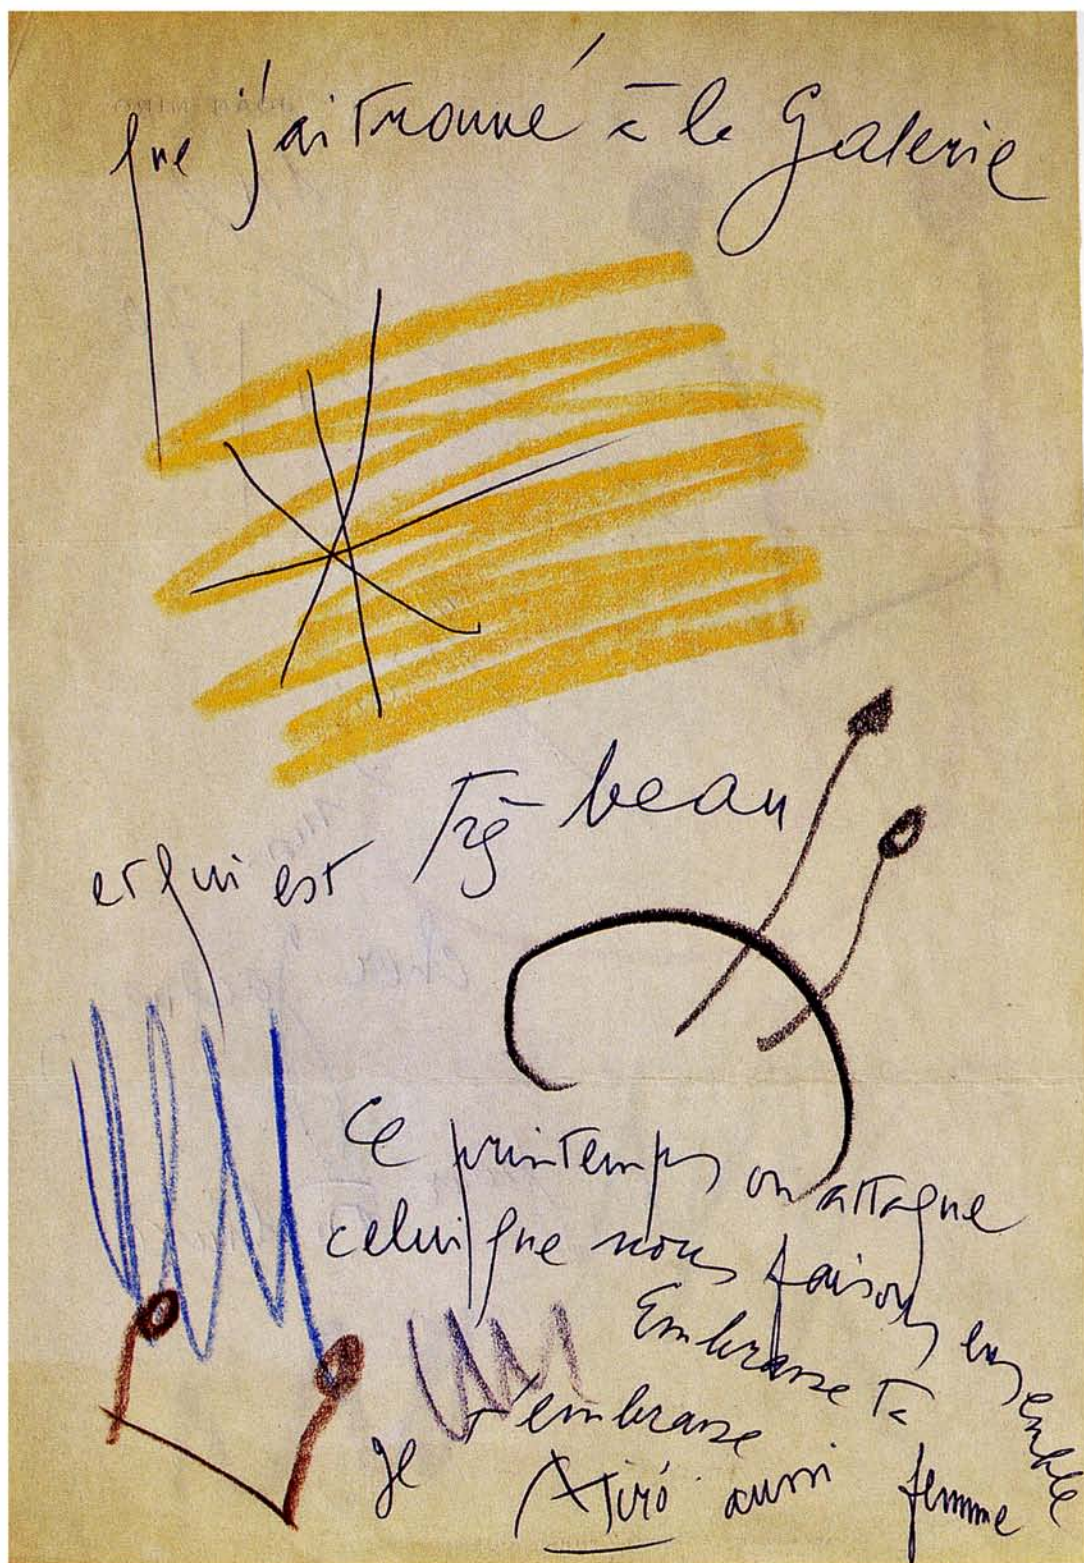 que j'ai trouvé à la Galerie
et qui est très beau
Ce printemps on attaque
celui que nous faisons ensemble
Embrasse ta femme
Je t'embrasse aussi
Miró